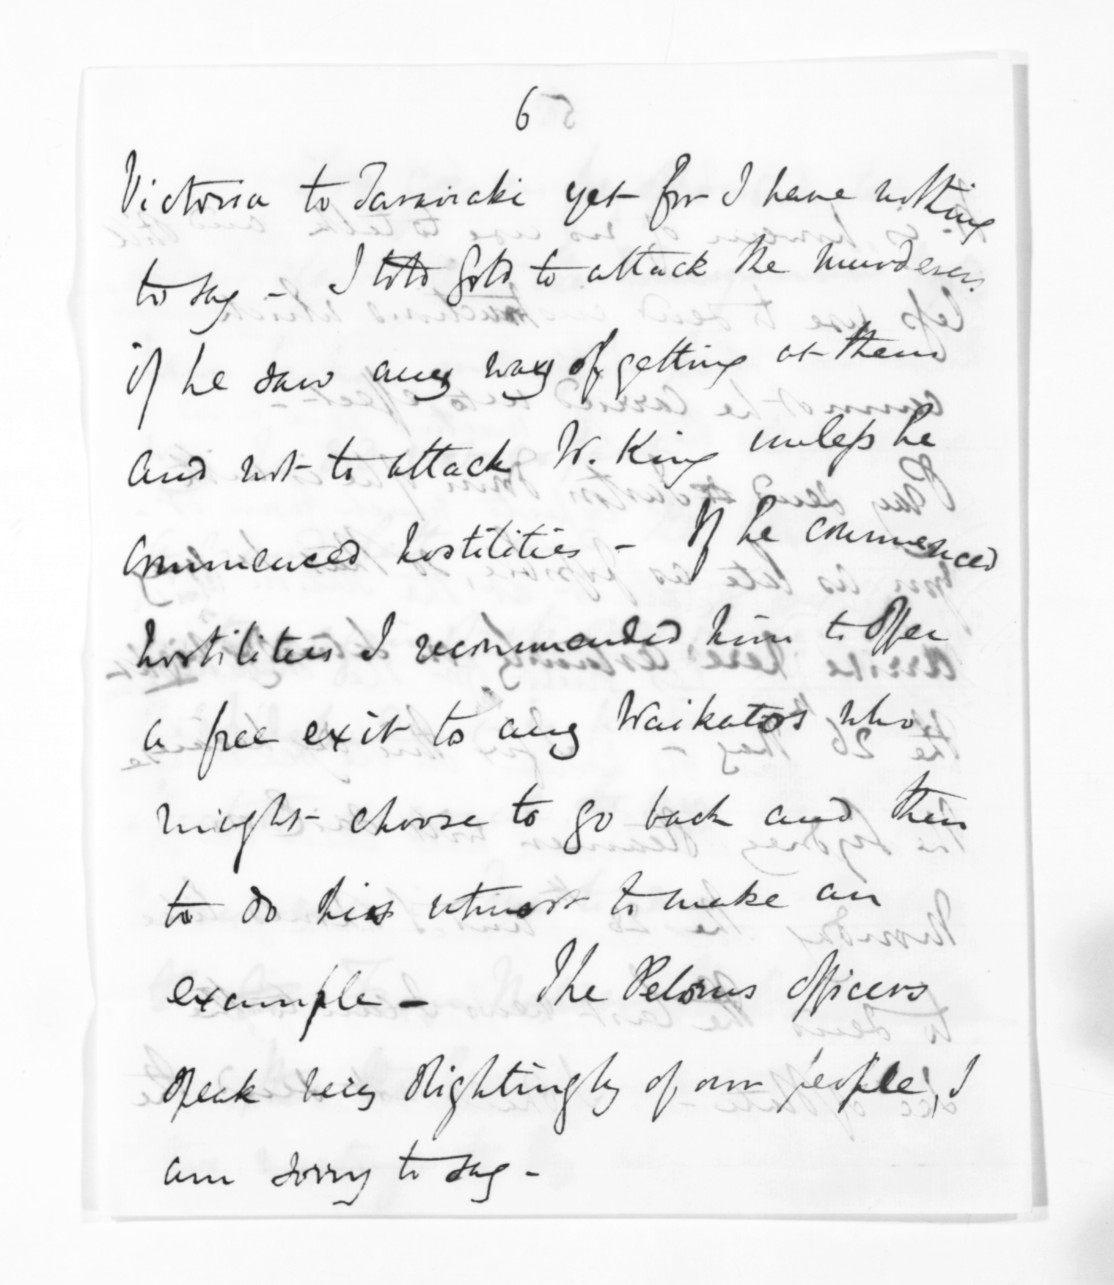 6
Victoria to Taranaki yet for I have nothing
to say - I told Gold to attack the murderers
if he saw any way of getting at them
and not to attack W. King unless he
commenced hostilities - If he commenced
hostilities I recommended him to offer
a free exit to any Waikatos who
might choose to go back and then
to do his utmost to make an
example - The Pelorus officers
speak very slightingly of our people, I
am sorry to say -